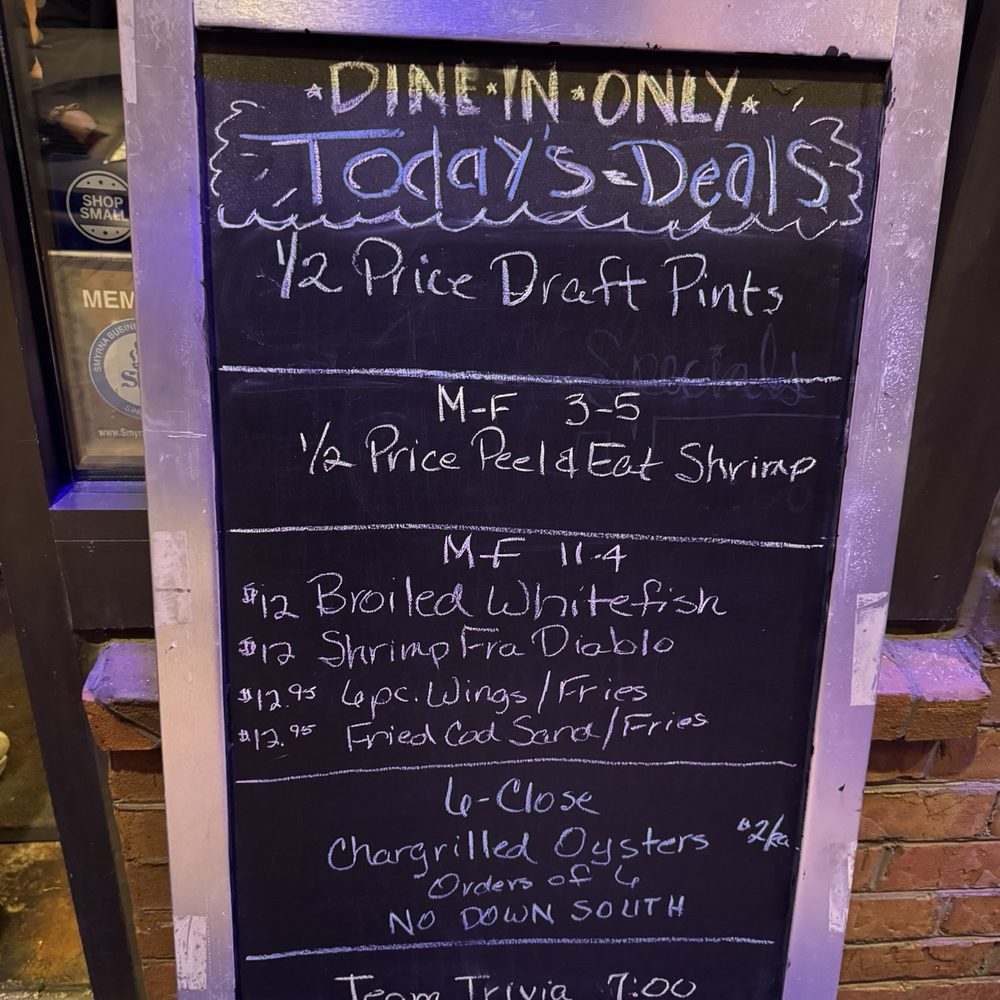 DINE·IN·ONLY
Today's Deals
1/2 Price Draft Pints
Specials
M-F 3-5
1/2 Price Peel & Eat Shrimp
M-F 11-4
$12 Broiled Whitefish
$12 Shrimp Fra Diablo
$12.95 6pc. Wings/Fries
$12.95 Fried Cod Sand/Fries
6-Close
Chargrilled Oysters $2/ea.
Orders of 6
NO DOWN SOUTH
Team Trivia 7:00
SHOP
SMALL
MEM
SMYRNA BUSIN
www.Smyr